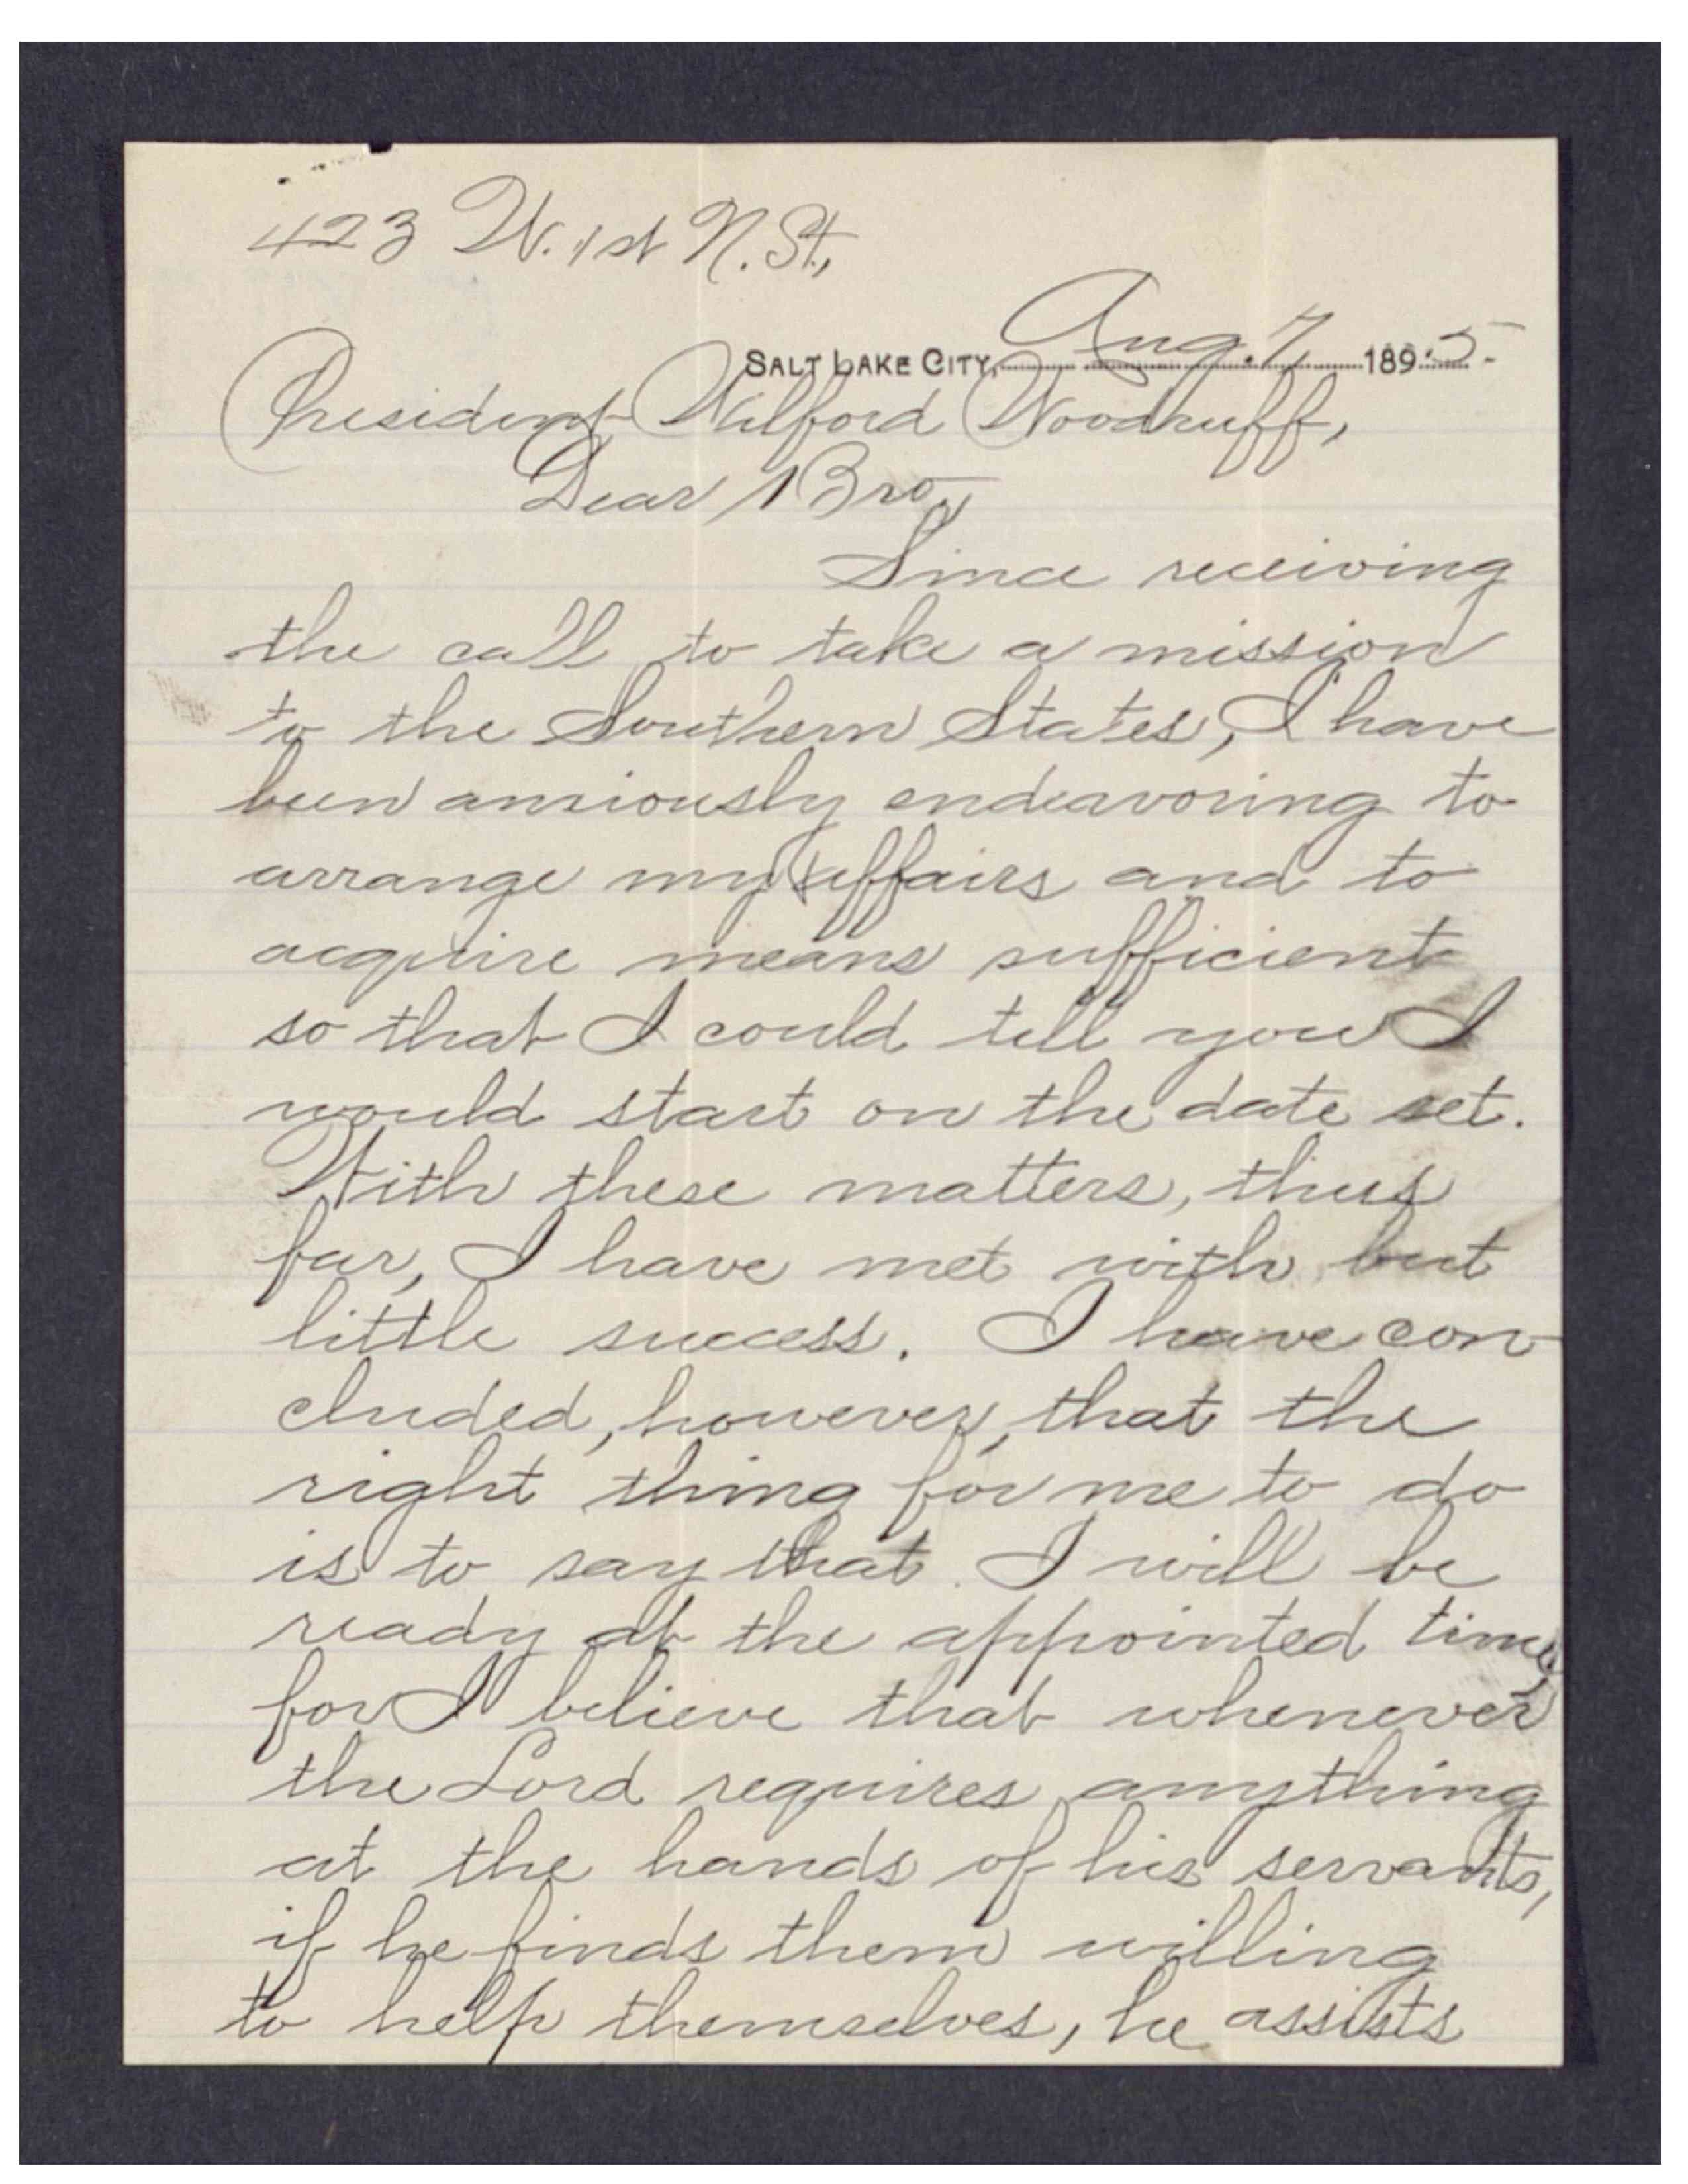 423 W. 1st N. St.,
SALT LAKE CITY, Aug. 7, 1895.
President Wilford Woodruff,
Dear Bro.,
Since receiving
the call to take a mission
to the Southern States, I have
been anxiously endeavoring to
arrange my affairs and to
acquire means sufficient
so that I could tell you I
would start on the date set.
With these matters, thus
far, I have met with but
little success. I have con-
cluded, however, that the
right thing for me to do
is to say that I will be
ready at the appointed time,
for I believe that whenever
the Lord requires anything
at the hands of his servants,
if he finds them willing
to help themselves, he assists